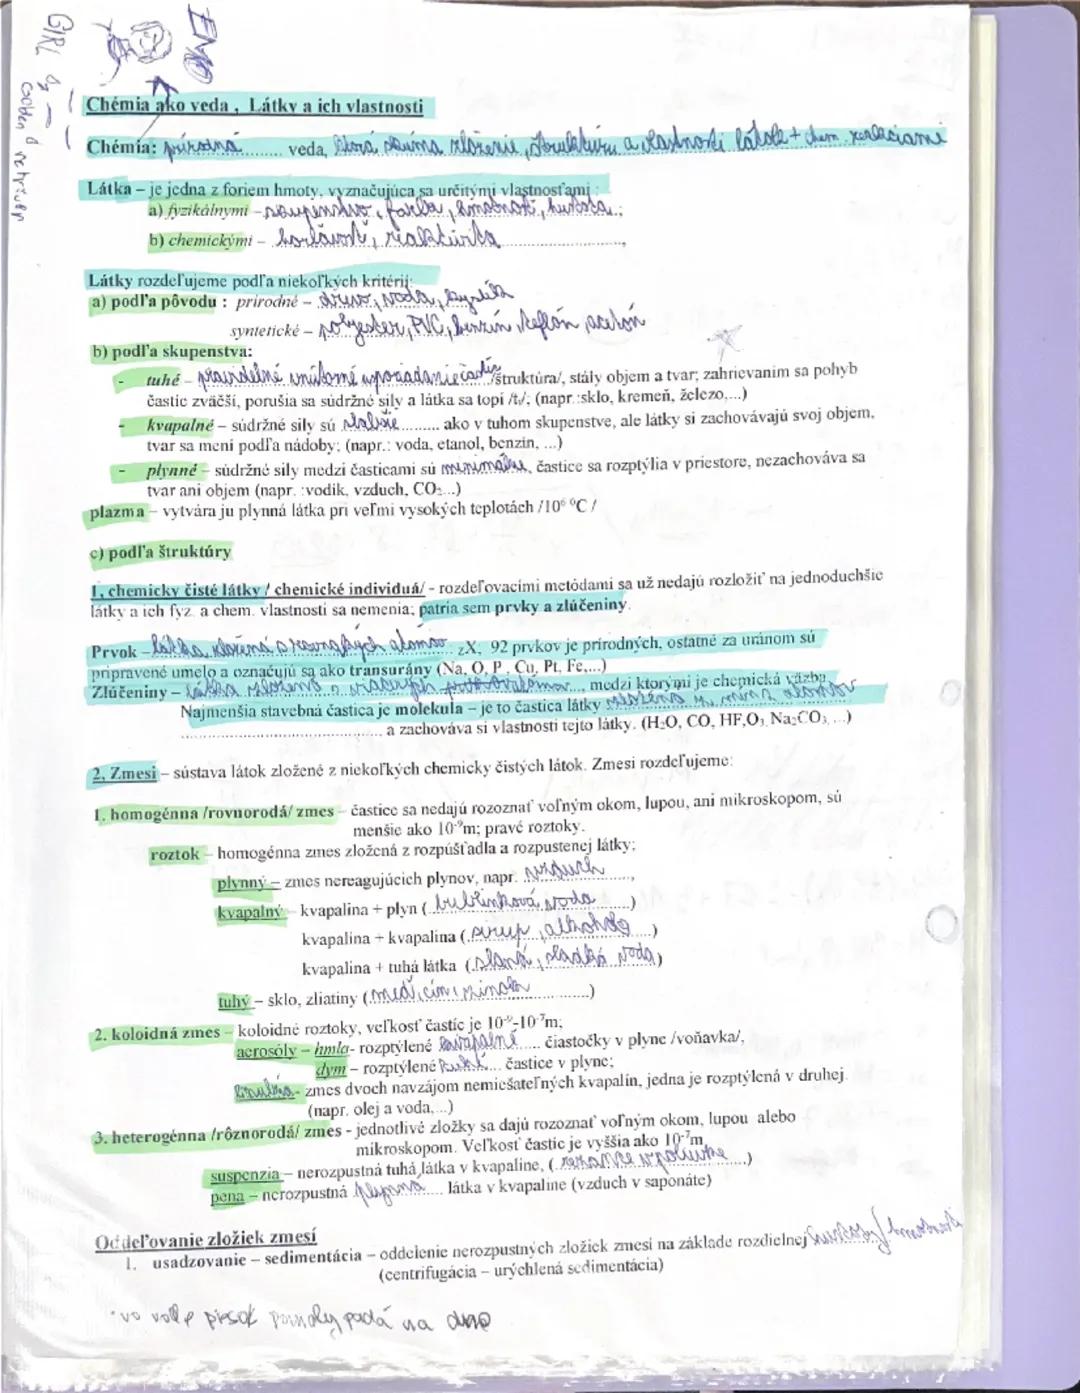 EMO
GIRL
Chémia ako veda, Látky a ich vlastnosti
Chémia: prírodná ........ veda, ktorá skúma zloženie, štruktúru a vlastnosti látok + chem. reakciami
Látka – je jedna z foriem hmoty, vyznačujúca sa určitými vlastnosťami :
a) fyzikálnymi – skupenstvo, farba, hmotnosť, hustota..;
b) chemickými – horľavosť, reaktivita ................,
Látky rozdeľujeme podľa niekoľkých kritérií:
a) podľa pôvodu : prírodné – drevo, voda, kyslík
syntetické – polyester, PVC, benzín, teflón, acetón
b) podľa skupenstva:
- tuhé – pravidelné vnútorné usporiadanie častíc /štruktúra/, stály objem a tvar; zahrievaním sa pohyb
častíc zväčší, porušia sa súdržné sily a látka sa topí /t/; (napr.:sklo, kremeň, železo,...)
- kvapalné – súdržné sily sú slabšie ........ ako v tuhom skupenstve, ale látky si zachovávajú svoj objem,
tvar sa mení podľa nádoby; (napr.: voda, etanol, benzín, ...)
- plynné – súdržné sily medzi časticami sú minimálne, častice sa rozptýlia v priestore, nezachováva sa
tvar ani objem (napr. :vodík, vzduch, CO₂...)
plazma – vytvára ju plynná látka pri veľmi vysokých teplotách /10⁶ ⁰C /
c) podľa štruktúry
1. chemicky čisté látky / chemické indivíduá/ - rozdeľovacími metódami sa už nedajú rozložiť na jednoduchšie
látky a ich fyz. a chem. vlastnosti sa nemenia; patria sem prvky a zlúčeniny.
Prvok – látka zložená z rovnakých atómov ₂X; 92 prvkov je prírodných, ostatné za uránom sú
pripravené umelo a označujú sa ako transurány (Na, O, P, Cu, Pt, Fe,...)
Zlúčeniny – látka zložená z viacerých atómov..., medzi ktorými je chemická väzba.
Najmenšia stavebná častica je molekula – je to častica látky zložená z min. 2 atómov
................ a zachováva si vlastnosti tejto látky. (H₂O, CO, HF,O₃, Na₂CO₃, ...)
2. Zmesi – sústava látok zložené z niekoľkých chemicky čistých látok. Zmesi rozdeľujeme:
1. homogénna /rovnorodá/ zmes – častice sa nedajú rozoznať voľným okom, lupou, ani mikroskopom, sú
menšie ako 10⁻⁹m; pravé roztoky.
roztok – homogénna zmes zložená z rozpúšťadla a rozpustenej látky;
plynný – zmes nereagujúcich plynov, napr. vzduch ........,
kvapalný – kvapalina + plyn ( bublinková voda ......)
kvapalina + kvapalina ( sirup, alkohol ....)
kvapalina + tuhá látka ( slaná, sladká voda )
tuhý – sklo, zliatiny ( meď, cín, zinok ........)
2. koloidná zmes – koloidné roztoky, veľkosť častíc je 10⁻⁹-10⁻⁷m;
aerosóly – hmla- rozptýlené kvapalné .... čiastočky v plyne /voňavka/,
dym – rozptýlené tuhé.... častice v plyne;
Emulzia- zmes dvoch navzájom nemiešateľných kvapalín, jedna je rozptýlená v druhej.
(napr. olej a voda,...)
3. heterogénna /rôznorodá/ zmes - jednotlivé zložky sa dajú rozoznať voľným okom, lupou alebo
mikroskopom. Veľkosť častíc je vyššia ako 10⁻⁷m
suspenzia – nerozpustná tuhá látka v kvapaline, ( rezance v polievke ....)
pena – nerozpustná plynná .... látka v kvapaline (vzduch v saponáte)
Oddeľovanie zložiek zmesí
1. usadzovanie – sedimentácia – oddelenie nerozpustných zložiek zmesi na základe rozdielnej hustoty/hmotnosti
(centrifugácia – urýchlená sedimentácia)
• vo vode piesok pomaly padá na dno